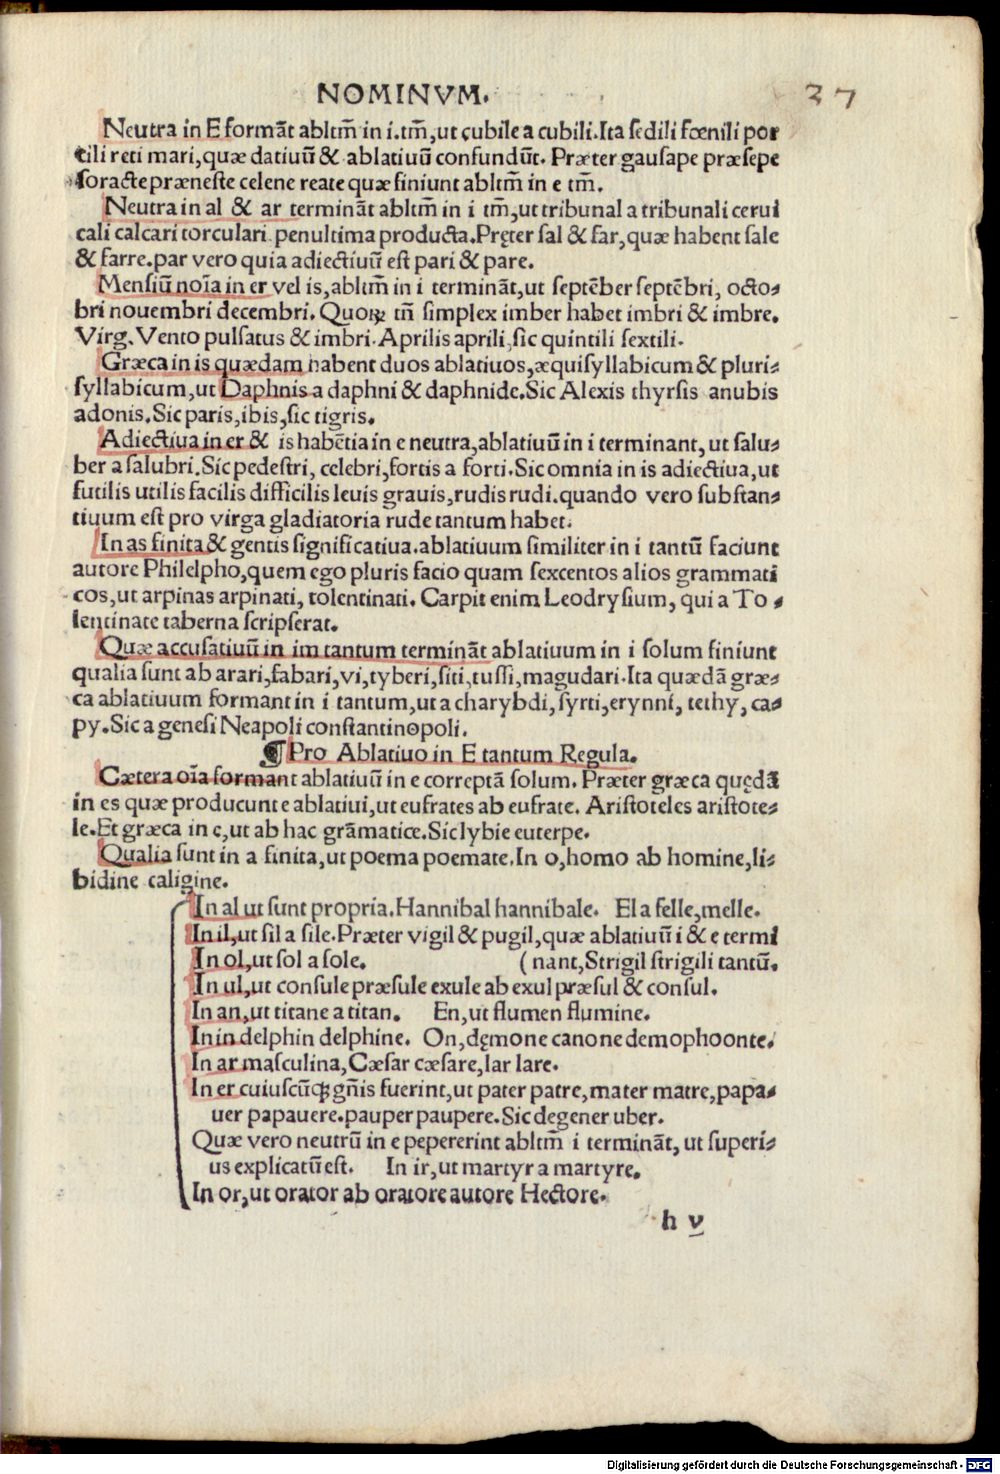 NOMINVM.
37
Neutra in E formāt abltm̄ in i.tm̄,ut cubile a cubili.Ita sedili fœnili por
tili reti mari,quæ datiuū & ablatiuū confundūt. Præter gausape præsepe
soracte præneste celene reate quæ finiunt abltm̄ in e tm̄.
Neutra in al & ar termināt abltm̄ in i tm̄,ut tribunal a tribunali cerui
cali calcari torculari penultima producta.Pręter sal & far,quæ habent sale
& farre.par vero quia adiectiuū est pari & pare.
Mensiū noīa in er vel is,abltm̄ in i termināt,ut septēber septēbri, octo-
bri nouembri decembri. Quoꝝ tn̄ simplex imber habet imbri & imbre.
Virg.Vento pulsatus & imbri.Aprilis aprili,sic quintili sextili.
Græca in is quædam habent duos ablatiuos,æquisyllabicum & pluri-
syllabicum,ut Daphnis a daphni & daphnide.Sic Alexis thyrsis anubis
adonis.Sic paris,ibis,sic tigris.
Adiectiua in er & is habētia in e neutra,ablatiuū in i terminant,ut salu-
ber a salubri.Sic pedestri, celebri,fortis a forti.Sic omnia in is adiectiua,ut
futilis utilis facilis difficilis leuis grauis,rudis rudi.quando vero substan-
tiuum est pro virga gladiatoria rude tantum habet.
In as finita & gentis significatiua.ablatiuum similiter in i tantū faciunt
autore Philelpho,quem ego pluris facio quam sexcentos alios grammati
cos,ut arpinas arpinati, tolentinati. Carpit enim Leodrysium, qui a To-
lentinate taberna scripserat.
Quæ accusatiuū in im tantum termināt ablatiuum in i solum finiunt
qualia sunt ab arari,fabari,vi,tyberi,siti,tussi,magudari.Ita quædā græ-
ca ablatiuum formant in i tantum,ut a charybdi,syrti,erynni, tethy, ca-
py.Sic a genesi Neapoli constantinopoli.
¶ Pro Ablatiuo in E tantum Regula.
Cætera oīa formant ablatiuū in e correptā solum. Præter græca quędā
in es quæ producunt e ablatiui,ut eufrates ab eufrate. Aristoteles aristote-
le.Et græca in e,ut ab hac grāmatice.Sic lybie euterpe.
Qualia sunt in a finita,ut poema poemate.In o,homo ab homine,li-
bidine caligine.
In al ut sunt propria.Hannibal hannibale. El a felle,melle.
In il,ut sil a sile.Præter vigil & pugil,quæ ablatiuū i & e termi
In ol,ut sol a sole. ( nant,Strigil strigili tantū.
In ul,ut consule præsule exule ab exul præsul & consul.
In an,ut titane a titan. En,ut flumen flumine.
In in delphin delphine. On,dęmone canone demophoonte.
In ar masculina,Cæsar cæsare,lar lare.
In er cuiuscūqꝫ gn̄is fuerint,ut pater patre,mater matre,papa-
uer papauere.pauper paupere.Sic degener uber.
Quæ vero neutrū in e pepererint abltm̄ i termināt, ut superi-
us explicatū est. In ir,ut martyr a martyre.
In or,ut orator ab oratore autore Hectore.
h v
Digitalisierung gefördert durch die Deutsche Forschungsgemeinschaft - DFG